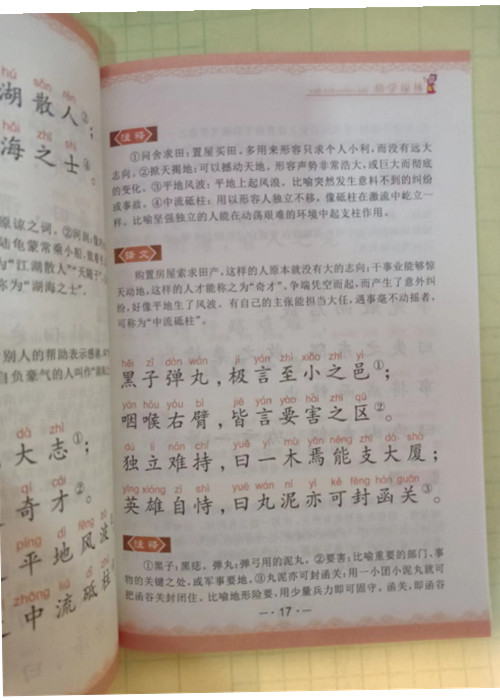 hú sǎn rén
湖散人③；
hǎi zhī shì
海之士④。
原谅之词。②问
陆龟蒙常乘小船，
为“江湖散人”“天随子”。
称为“湖海之士”。
别人的帮助表示感谢，
自负豪气的人叫作“
dà zhì
大志①；
qí cái
奇才②。
píng dì fēng bō
平地风波
zhōng liú dǐ zhù
中流砥柱
注释
①问舍求田：置屋买田，多用来形容只求个人小利，而没有远大
志向。②掀天揭地：可以撼动天地，形容声势非常浩大，或巨大而彻底
的变化。③平地风波：平地上起风浪。比喻突然发生意料不到的纠纷
或事故。④中流砥柱：用以形容人独立不移，像砥柱在激流中屹立一
样。比喻坚强独立的人能在动荡艰难的环境中起支柱作用。
译文
购置房屋索求田产，这样的人原本就没有大的志向；干事业能够惊
天动地，这样的人才能称之为“奇才”。争端凭空而起，而产生了意外纠
纷，好像平地生了风波。有自己的主张能担当大任，遇事毫不动摇者，
可称为“中流砥柱”。
hēi zǐ dàn wán jí yán zhì xiǎo zhī yì
黑子弹丸，极言至小之邑①；
yān hóu yòu bì jiē yán yào hài zhī qū
咽喉右臂，皆言要害之区②。
dú lì nán chí yuē yí mù yān néng zhī dà shà
独立难持，曰一木焉能支大厦；
yīng xióng zì shì yuē wán ní yì kě fēng hán guān
英雄自恃，曰丸泥亦可封函关③。
注释
①黑子：黑痣。弹丸：弹弓用的泥丸。②要害：比喻重要的部门、事
物的关键之处，或军事要地。③丸泥亦可封函关：用一小团小泥丸就可
把函谷关封闭住。比喻地形险要，用少量兵力即可固守。函关，即函谷
17